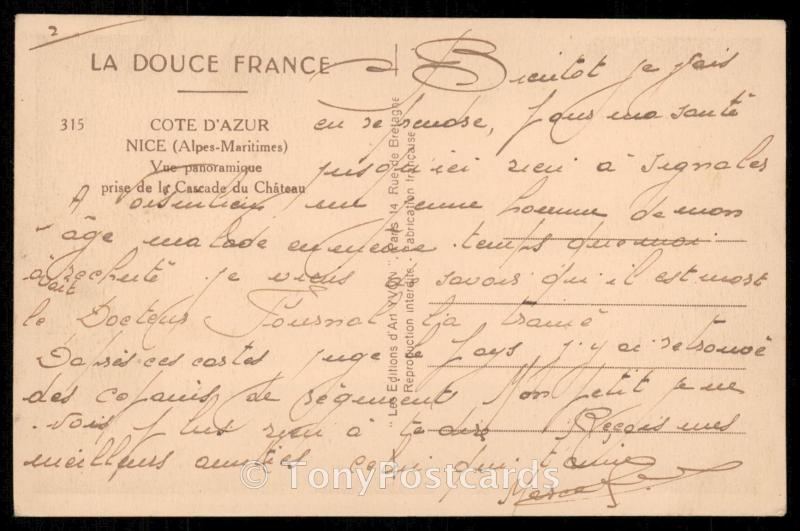 2
LA DOUCE FRANCE
315
COTE D'AZUR
NICE (Alpes-Maritimes)
Vue panoramique
prise de la Cascade du Château
"Les Editions d'Art YVON", Paris 14 Rue de Bretagne
Reproduction interdite. Fabrication française
Bientôt je vais
en reprendre, pour ma santé
jusqu'ici rien à signaler
A un jeune homme de mon
âge malade en même temps que moi
avait rechuté je viens de savoir qu'il est mort
le Docteur l'a
D'après ces cartes juge le pays j'y ai retrouvé
des copains de régiment Mon petit je ne
vois plus rien à te dire Reçois mes
meilleurs amitiés celui qui t'aime
Marcel
© TonyPostcards